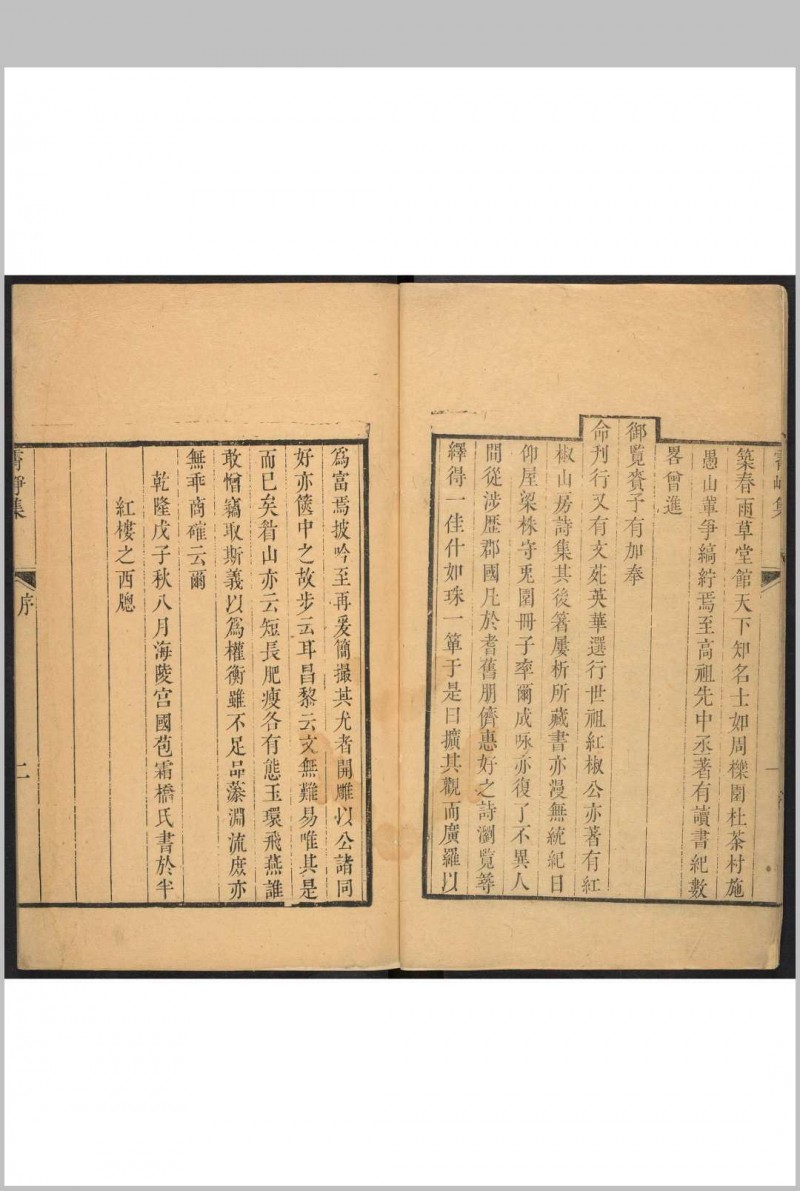 築春雨草堂館天下知名士如周櫟園杜茶村施
愚山輩爭縞紵焉至高祖先中丞著有讀書紀數
畧曾進
御覽賚予有加奉
命刊行又有文苑英華選行世祖紅椒公亦著有紅
椒山房詩集其後箸屢析所藏書亦漫無統紀日
仰屋梁株守兎園冊子率爾成咏亦復了不異人
間從涉歷郡國凡於耆舊朋儕惠好之詩瀏覽尋
繹得一佳什如珠一簞于是曰擴其觀而廣羅以
為富焉披吟至再爰簡撮其尤者開雕以公諸同
好亦篋中之故步云耳昌黎云文無難易唯其是
而已矣若山亦云短長肥瘦各有態玉環飛燕誰
敢憎竊取斯義以為權衡雖不足品藻淵流庶亦
無乖商確云爾
乾隆戊子秋八月海陵宮國苞霜橋氏書於半
紅樓之西牕
集
序
二